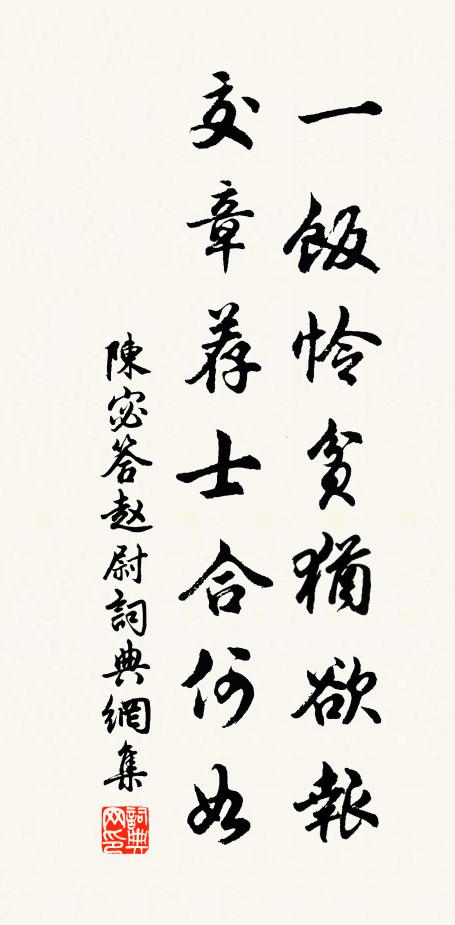 一飯怜貧猶欲報
交章荐士合何如
陳宓答赵尉詞典網集
詞典
网印